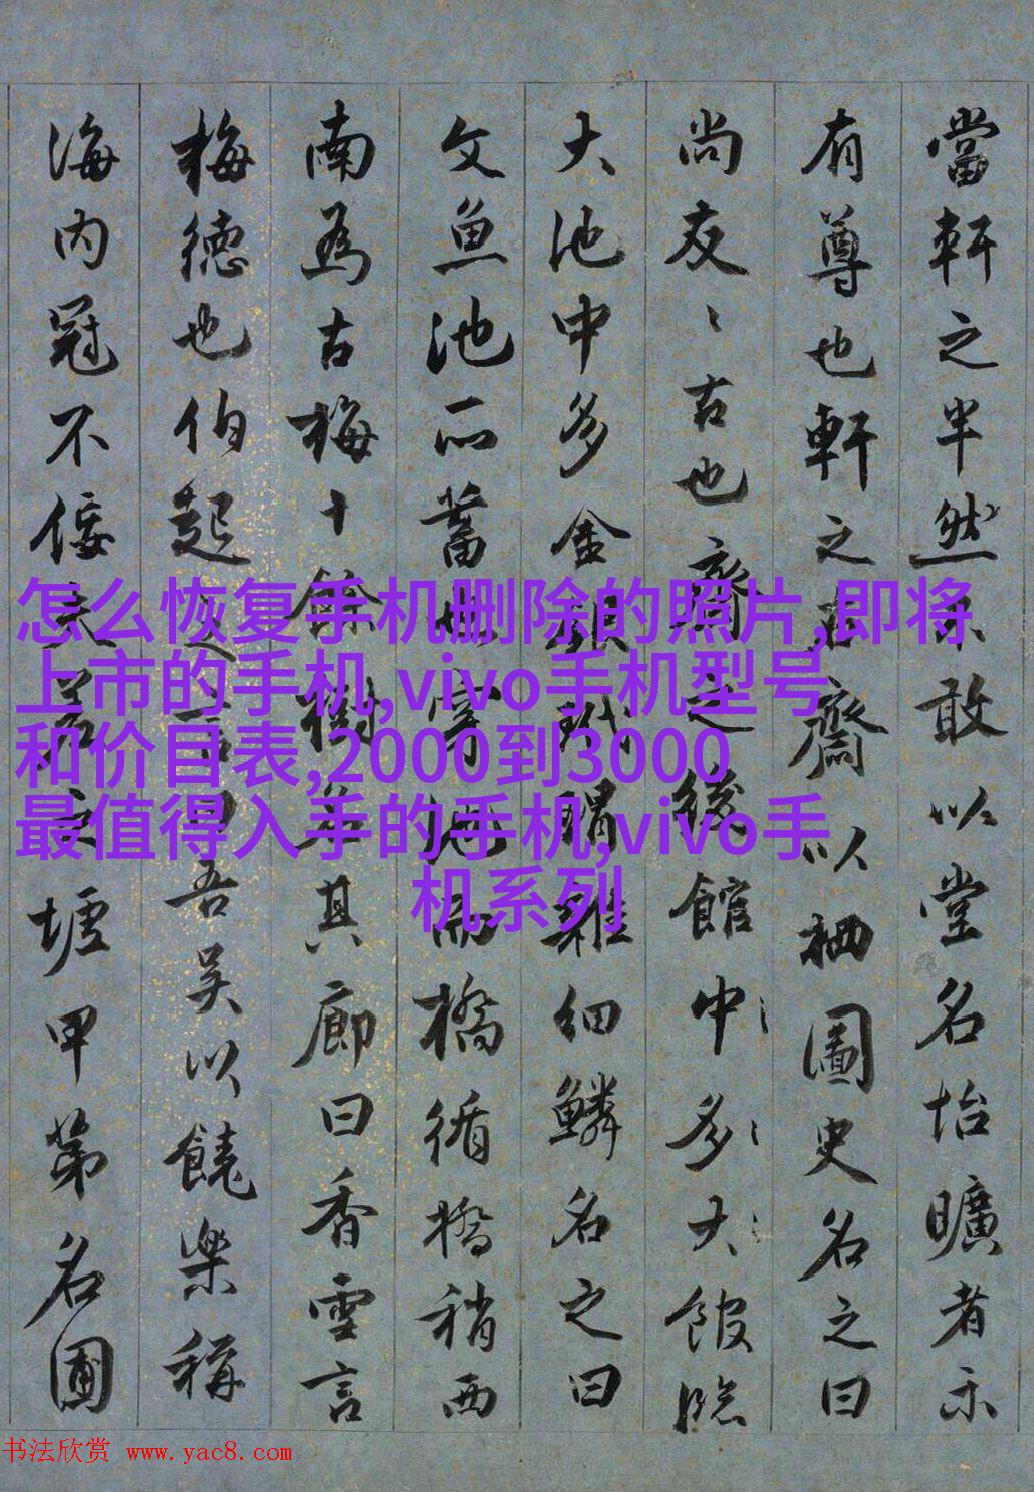 當軒之半然不敢以堂名怡曠者示
有尊也軒之右齋以栖圖史名之曰
尚友友古也齋之後館中多大館臨
大池中多金銀玳瑁雜細鱗名之曰
文魚池所蓄也穿池而橋循橋稍西
南為古梅十餘樹名其廊曰香雪言
梅德也伯起之言曰吾吳以饒樂稱
海內冠不佞夫差之墟甲第名圃
怎么恢复手机删除的照片,即将
上市的手机,vivo手机型号
和价目表,2000到3000
最值得入手的手机,vivo手
机系列
书法欣赏 www.yac8.com